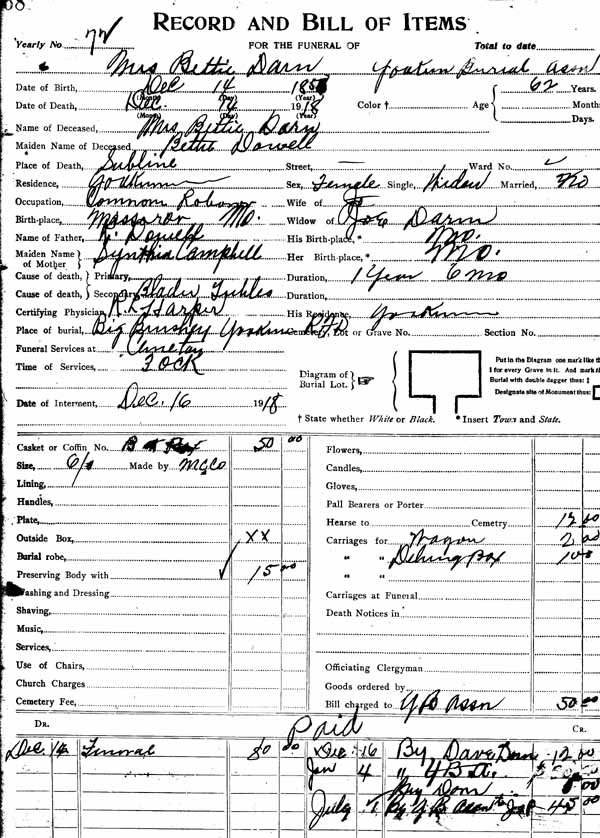 68
RECORD AND BILL OF ITEMS
Yearly No. 72 FOR THE FUNERAL OF Total to date
Mrs Bettie Darn Yoakum Burial Assn
Date of Birth, Dec 14 185 62 Years.
(Month) (Day) (Year)
Date of Death, Dec 14 1918 Color † Age Months
(Month) (Day) (Year) Days.
Name of Deceased, Mrs Bettie Darn
Maiden Name of Deceased, Bettie Dowell
Place of Death, Subline Street, — Ward No.
Residence, Yoakum Sex, Female Single, Widow Married, No
Occupation, Common Wife of
Birth-place, Mo. Widow of Joe Darn
Name of Father, His Birth-place,* Mo.
Maiden Name of Mother Synthia Campbell Her Birth-place,* Mo.
Cause of death, Primary, Duration, 1 Year 6 mo
Cause of death, Secondary, Blader Duration,
Certifying Physician, Harper His Residence, Yoakum
Place of burial, Big Brushey Yoakum RFD Cemetery, Lot or Grave No. Section No.
Funeral Services at Cemetay
Time of Services, OCK
Diagram of Burial Lot.
Put in the Diagram one mark like th
I for every Grave in it. And mark th
Burial with double dagger thus: ‡
Designate site of Monument thus:
Date of Interment, Dec. 16 1918 † State whether White or Black. * Insert Town and State.
Casket or Coffin No. 50 00 Flowers,
Size, 6/ Made by M Co Candles,
Lining, Gloves,
Handles, Pall Bearers or Porter
Plate, Hearse to Cemetry, 12 00
Outside Box, XX Carriages for Wagon 2 00
Burial robe, " " box 1 00
Preserving Body with ✓ 15 00 " "
Washing and Dressing Carriages at Funeral
Shaving, Death Notices in
Music,
Services,
Use of Chairs, Officiating Clergyman
Church Charges Goods ordered by
Cemetery Fee, Bill charged to Y B Assn 50 00
DR. Paid CR.
Dec. 16 Funeral 80 00 Dec 16 By Dave Darn 12 00
Jan 4 " Y B A.
By Darn 00
July By Y B Assn 45 00